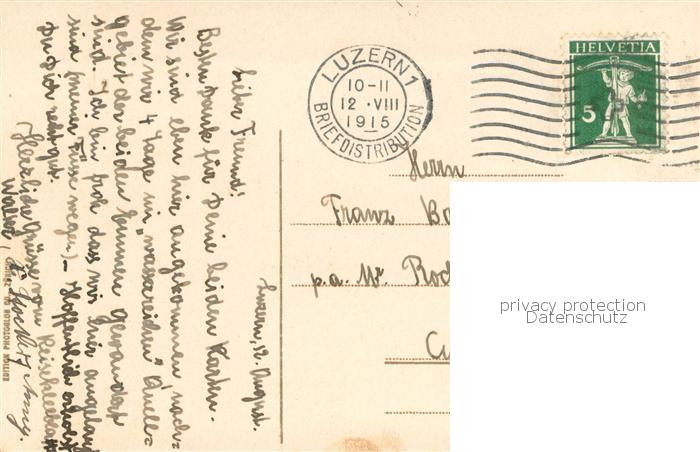 Luzern, 12. August.
Lieber Freund!
Besten Dank für Deine beiden Karten.
Wir sind eben hier angekommen nach-
dem wir 4 Tage im „wasserreichen" Quell-
gebiet der beiden Emmen gewandert
sind. Ich bin froh dass wir hier angelangt
sind (meiner Füsse wegen) – Hoffentlich erholst
Du Dich recht gut.
Herzliche Grüsse vom
Walter,
EDITION PHOTOGLOB CO. ZÜRICH
LUZERN 1
10-11
12. VIII
1915
BRIEFDISTRIBUTION
HELVETIA
5
Herrn
Franz
p.a. Mr.
privacy protection
Datenschutz